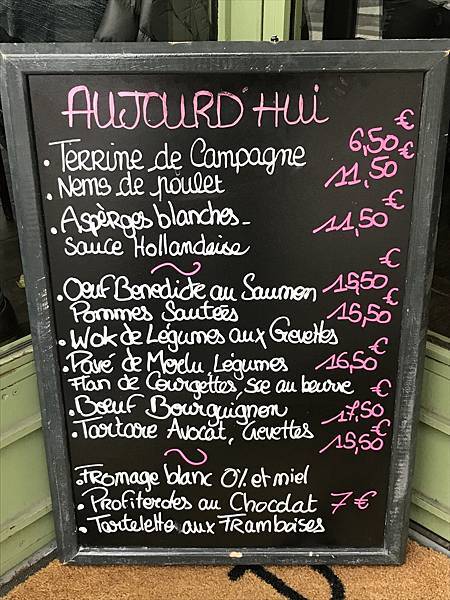 AUJOURD'HUI
. Terrine de Campagne 6,50 €
. Nems de poulet 11,50 €
. Asperges blanches - 11,50 €
sauce Hollandaise
. Oeuf Benedicte au Saumon 15,50 €
Pommes Sautées
. Wok de Légumes aux Crevettes 15,50 €
. Pavé de Morlu, Légumes 16,50 €
Flan de Courgettes, sce au beurre
. Boeuf Bourguignon 17,50 €
. Tartare Avocat, Crevettes 15,50 €
. Fromage blanc 0% et miel
. Profiteroles au Chocolat 7 €
. Tartelette aux Framboises